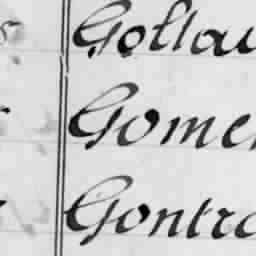 Gollau
Gomer
Gontra